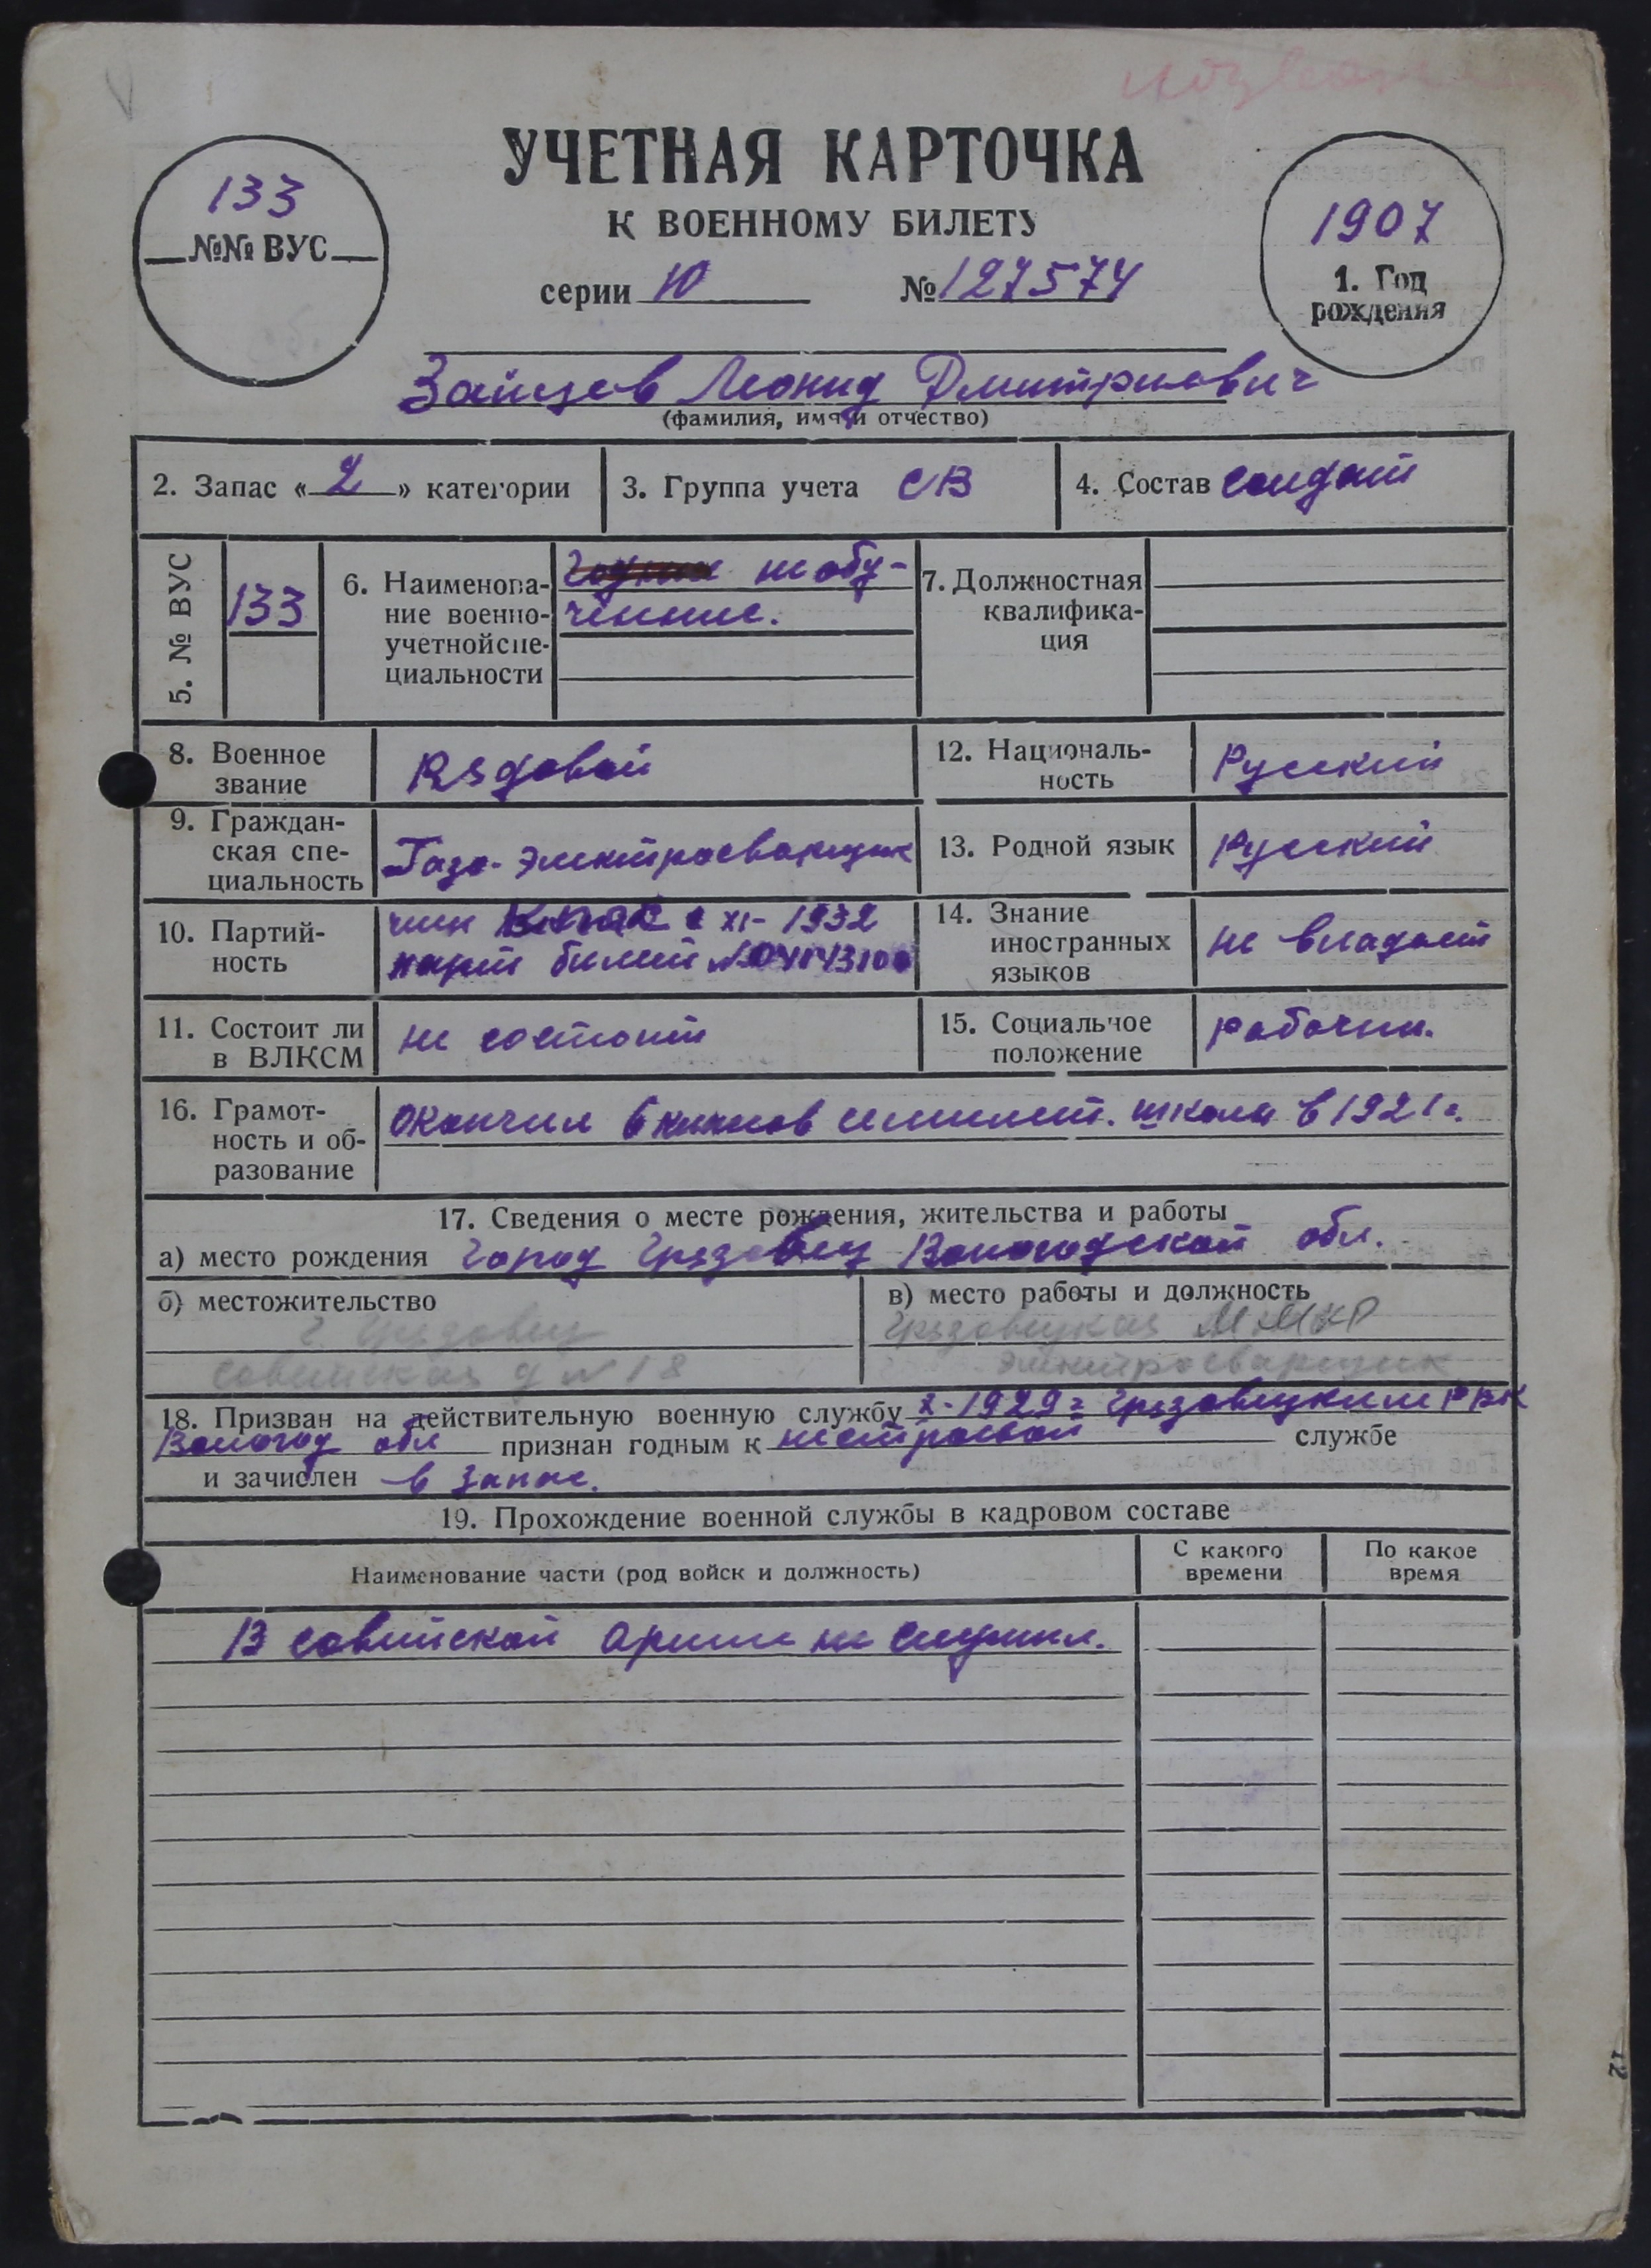 УЧЕТНАЯ КАРТОЧКА
К ВОЕННОМУ БИЛЕТУ
133
№№ ВУС
1907
1. Год
рождения
серии Ю № 127574
Зайцев Леонид Дмитриевич
(фамилия, имя и отчество)
2. Запас « 2 » категории
3. Группа учета СВ
4. Состав солдат
5. № ВУС
133
6. Наименова-
ние военно-
учетной спе-
циальности
необу-
ченные.
7. Должностная
квалифика-
ция
8. Военное
звание
Рядовой
12. Националь-
ность
Русский
9. Граждан-
ская спе-
циальность
Газо-электросварщик
13. Родной язык
Русский
10. Партий-
ность
член XI-1932
парт билет
14. Знание
иностранных
языков
не владеет
11. Состоит ли
в ВЛКСМ
не состоит
15. Социальное
положение
рабочий.
16. Грамот-
ность и об-
разование
Окончил 6 классов семилет. школы в 1921 г.
17. Сведения о месте рождения, жительства и работы
а) место рождения город Грязовец Вологодской обл.
б) местожительство
г. Грязовец
Советская д № 18
в) место работы и должность
Грязовецкая
электросварщик
18. Призван на действительную военную службу X-1929 г Грязовецким РВК
Вологод обл признан годным к нестроевой службе
и зачислен в запас.
19. Прохождение военной службы в кадровом составе
Наименование части (род войск и должность)
С какого
времени
По какое
время
В советской армии не служил.